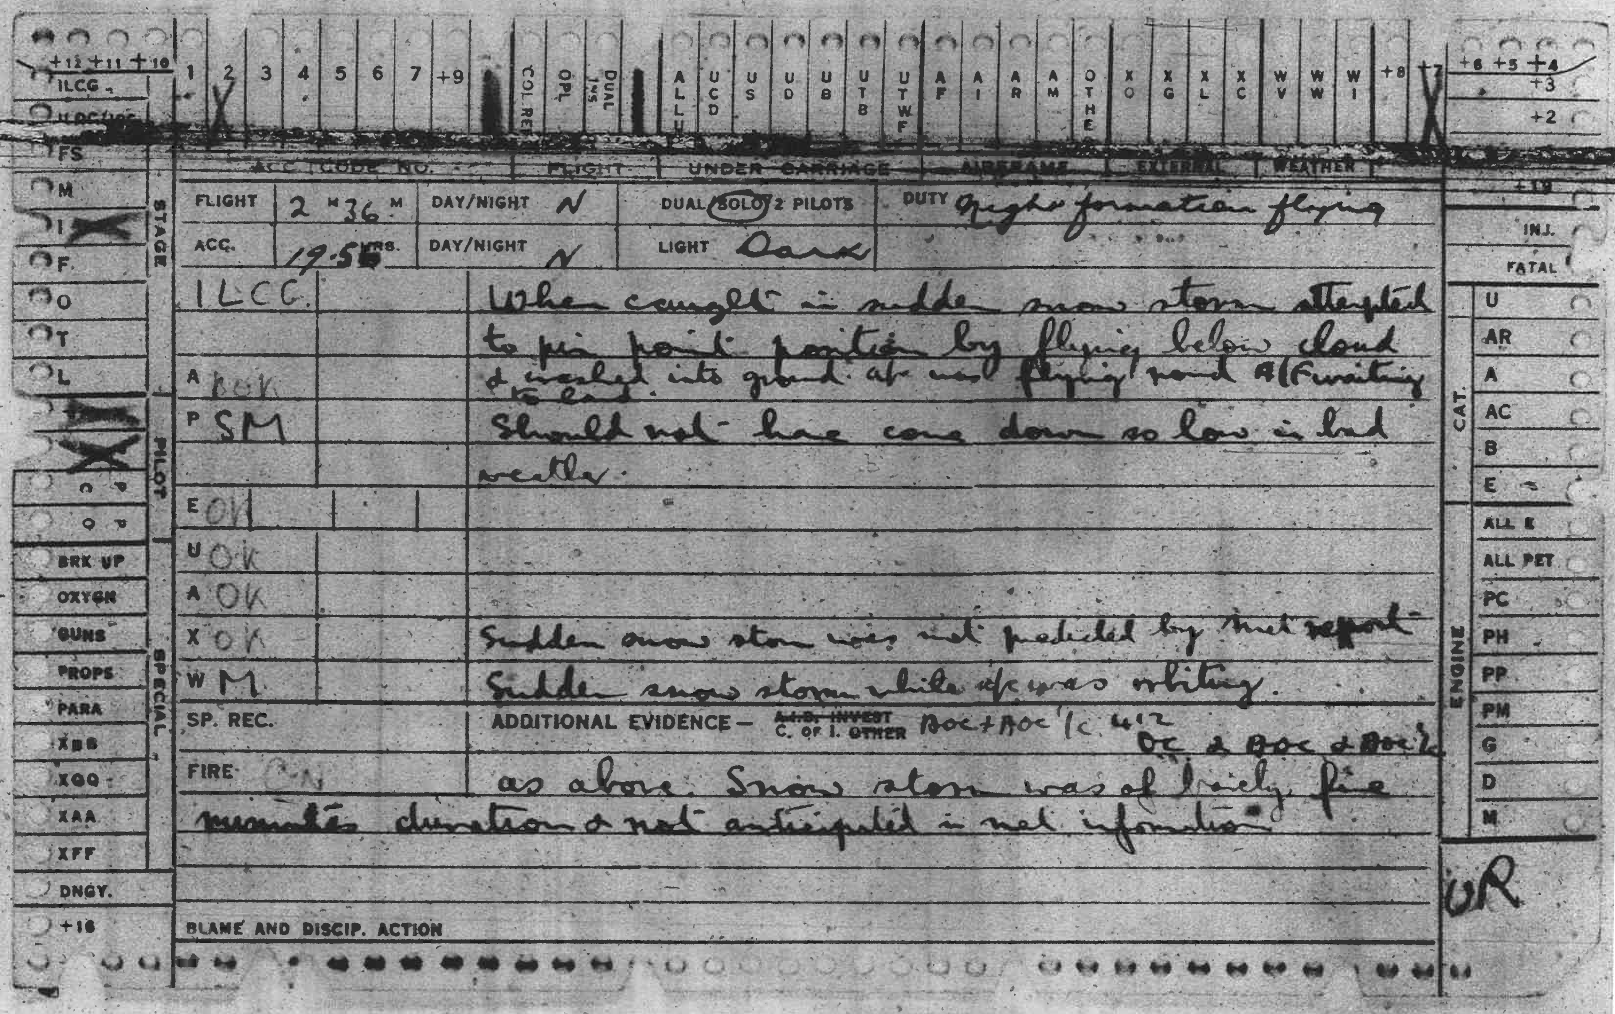 +12 +11 +10 1 2 3 4 5 6 7 +9 COL REF OPL DUAL INS ALLU UCD US UD UB UTB UTWF AF AI AR AM OTHE XO XG XL XC WV WW WI +8 +7 +6 +5 +4
ILCG +3
+2
FS ACC. CODE NO. FLIGHT UNDER CARRIAGE AIRFRAME EXTERNAL WEATHER
M STAGE FLIGHT 2 H 36 M DAY/NIGHT N DUAL/SOLO/2 PILOTS DUTY Night formation flying +19
I INJ.
F ACC. 19.5 HRS. DAY/NIGHT N LIGHT Dark FATAL
O ILCG. When caught in sudden snow storm attempted U
T to pin point position by flying below cloud AR
L A & crashed into ground. a/c was flying round A/F waiting A
to land.
PILOT P SM Should not have come down so low in bad CAT. AC
weather. B
P U E OK E
P O ALL E
BRK UP U OK ALL PET
OXYGN A OK PC
GUNS X OK Sudden snow storm was not predicted by met report ENGINE PH
PROPS SPECIAL W M Sudden snow storm while a/c was orbiting. PP
PARA SP. REC. ADDITIONAL EVIDENCE— A.I.B. INVEST AOC + AOC i/c PM
C. OF I. OTHER
XBB OC & AOC & AOC i/c G
XGQ FIRE as above. Snow storm was of barely five D
XAA minutes duration & not anticipated in met information M
XFF
DNGY. UR
+16 BLAME AND DISCIP. ACTION